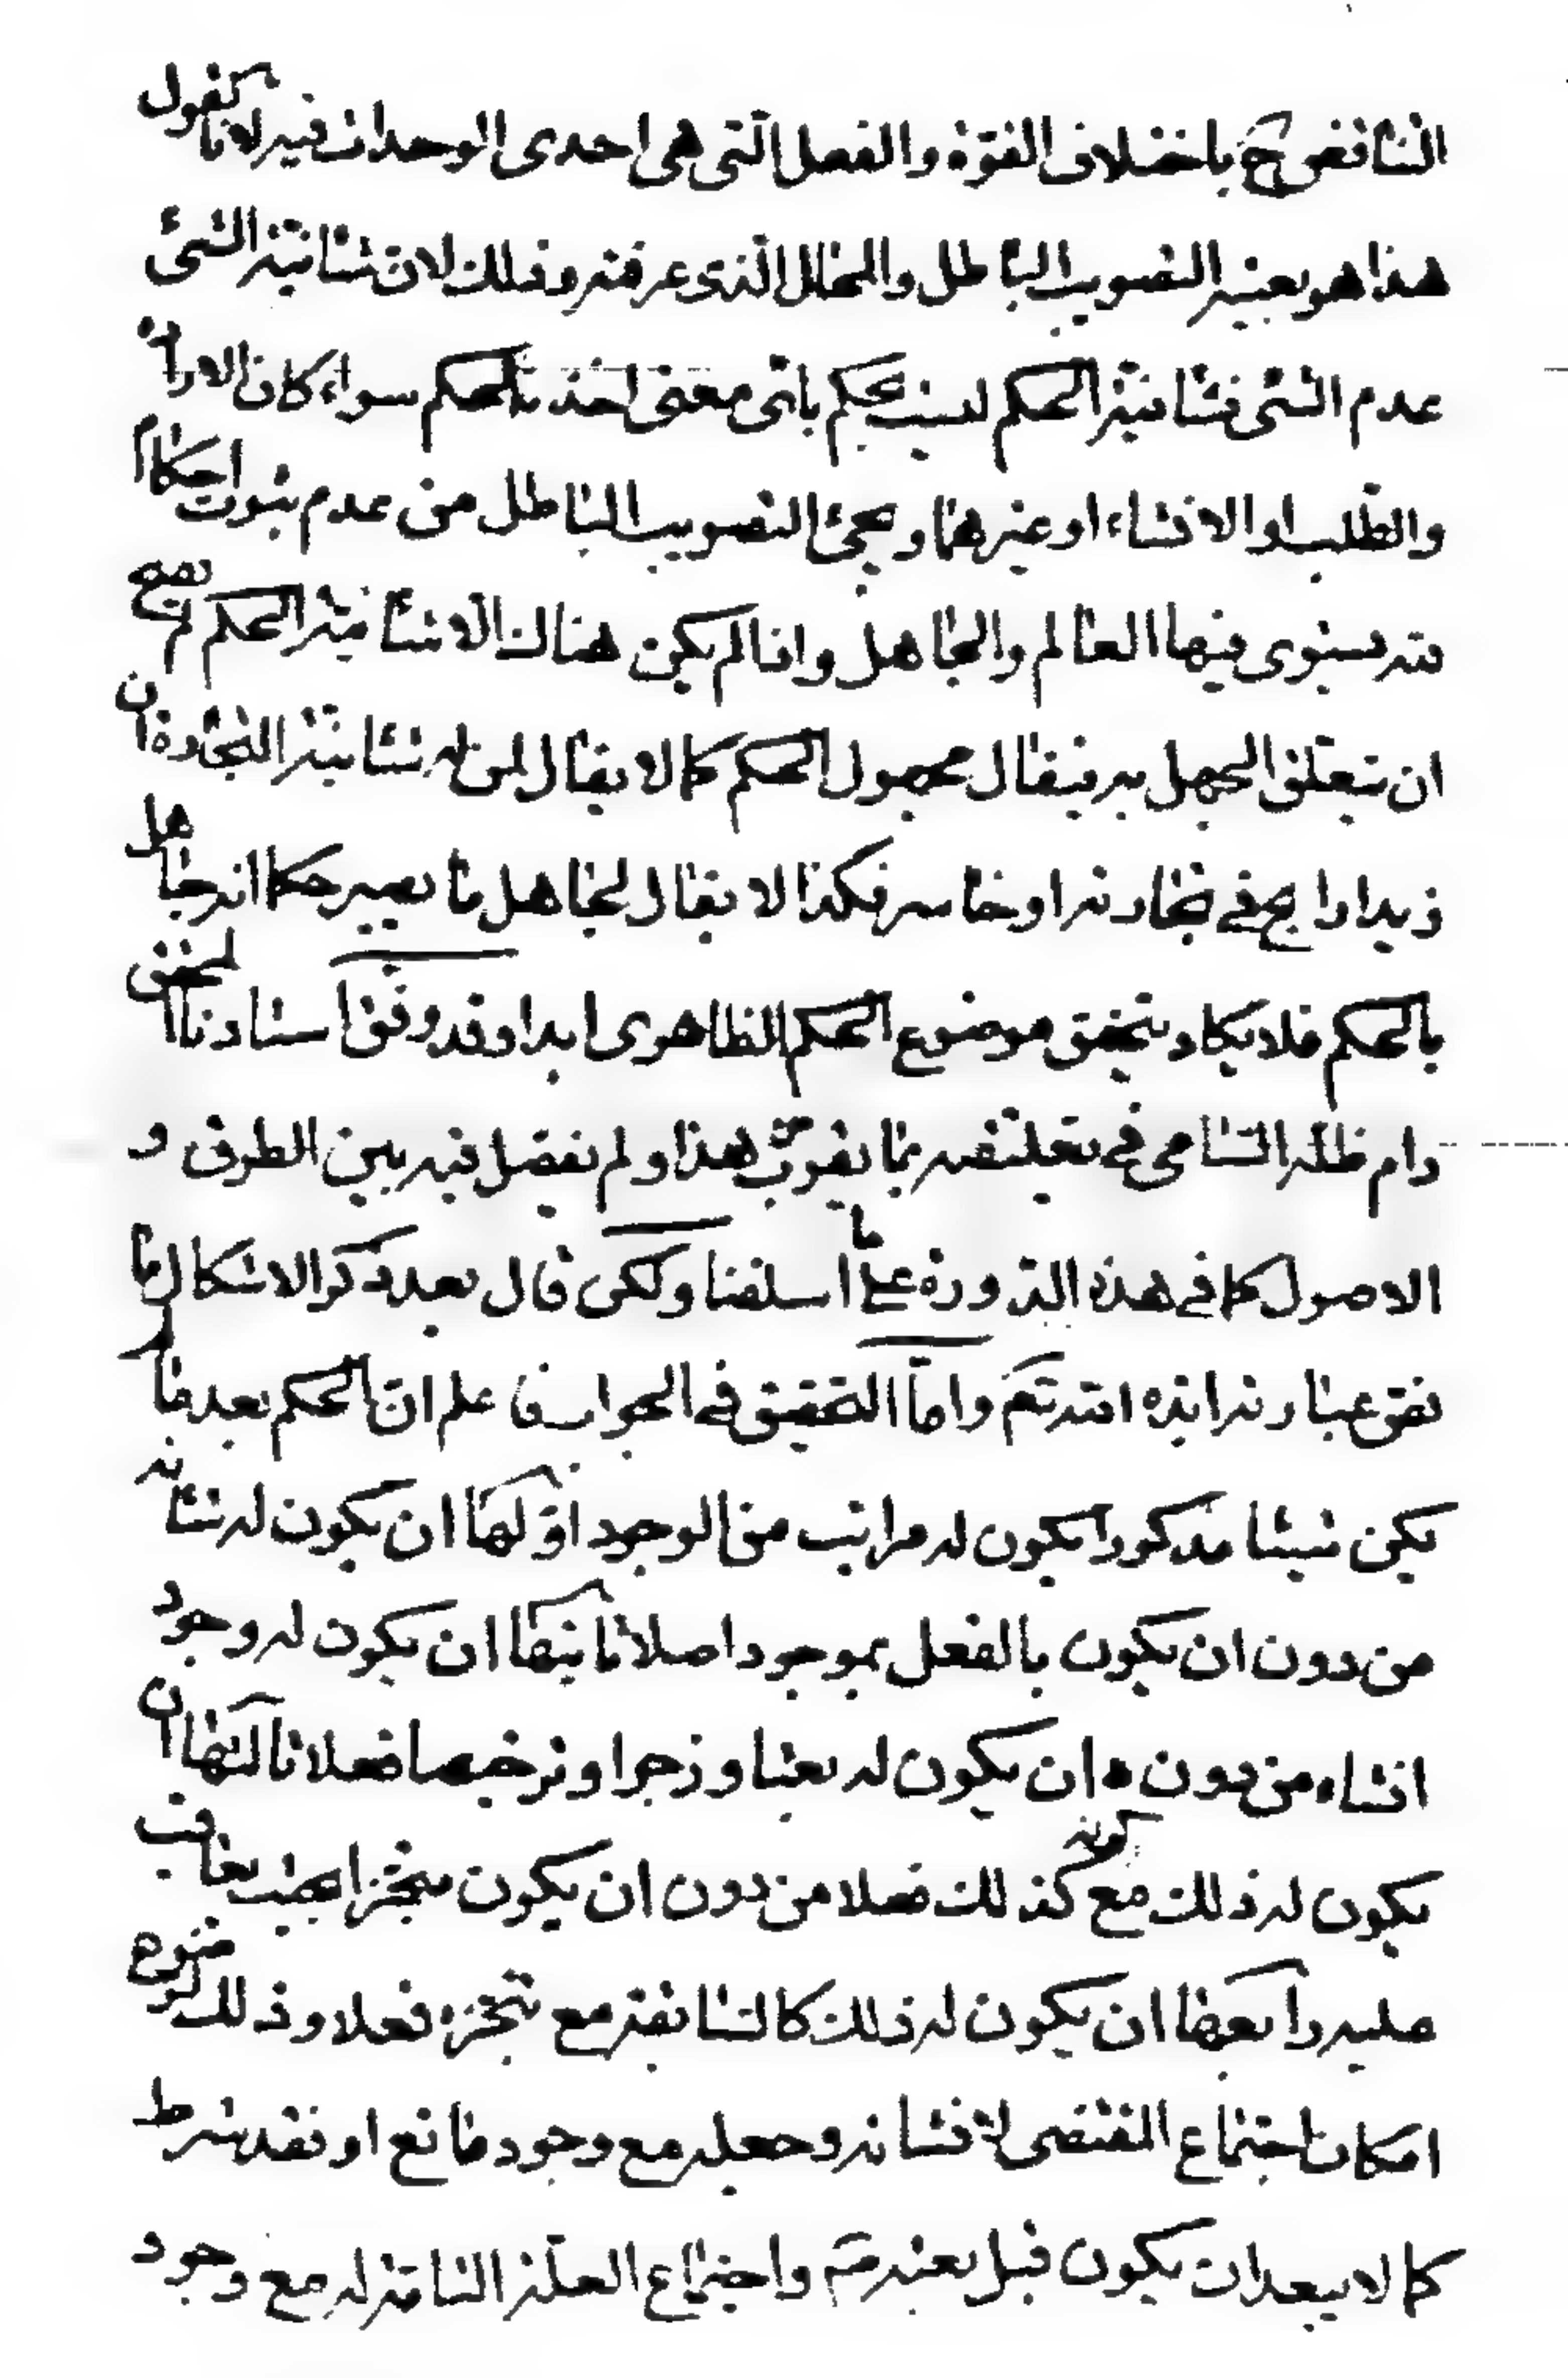 التناقض ح باختلاف القوّة والفعل الّتى هى احدى الوحدات فيه لانا نقول
هذا هو بعينه التصويب الباطل والمحال الّذى عرفته وذلك لانّ شانيّة الشىء
عدم الشىء فشانيّة الحكم ليست بحكم باىّ معنى اخذ الحكم سواء كان الارادة
والطّلب او الانشاء او غيرهما ويجئ التصويب الباطل من عدم ثبوت احكام
يستوى فيها العالم والجاهل واذا لم يكن هناك الّا شانيّة الحكم لم يصحّ
ان يتعلق الجهل به فيقال مجهول الحكم كما لا يقال لمن له شانيّة التجارة ان
زيدا رابح فى تجارته او خاسر فكذا لا يقال لجاهل ما يصير حكما انه جاهل
بالحكم فلا يكاد يتحقق موضوع الحكم الظاهرى ابدا وقد وفّق استادنا المحقق
دام ظلّه السّامى فى تعليقته بما يقرب من هذا ولم يفصّل فيه بين الطرق و
الاصول كما فى هذه الدّورة على ما اسلفنا ولكن قال بعد ذكر الاشكال ما
نصّ عبارته هذه وامّا التحقيق فى الجواب فاعلم انّ الحكم بعد ما لم
يكن شيئا مذكورا يكون له مراتب من الوجود اوّلها ان يكون له شانه
من دون ان يكون بالفعل بموجود اصلا ثانيها ان يكون له وجود
انشاء من دون ان يكون له بعثا وزجرا وترخيصا فعلا ثالثها ان
يكون له ذلك مع كونه كذلك فعلا من دون ان يكون منجّزا بحيث يعاقب
عليه رابعها ان يكون له ذلك كالسّابقة مع تنجّزه فعلا وذلك لوضوح
امكان اجتماع المقتضى لانشائه وجعله مع وجود مانع او فقد شرط
كما لا يبعد ان يكون قبل بعثه ص واجتماع العلّة التامّة له مع وجود